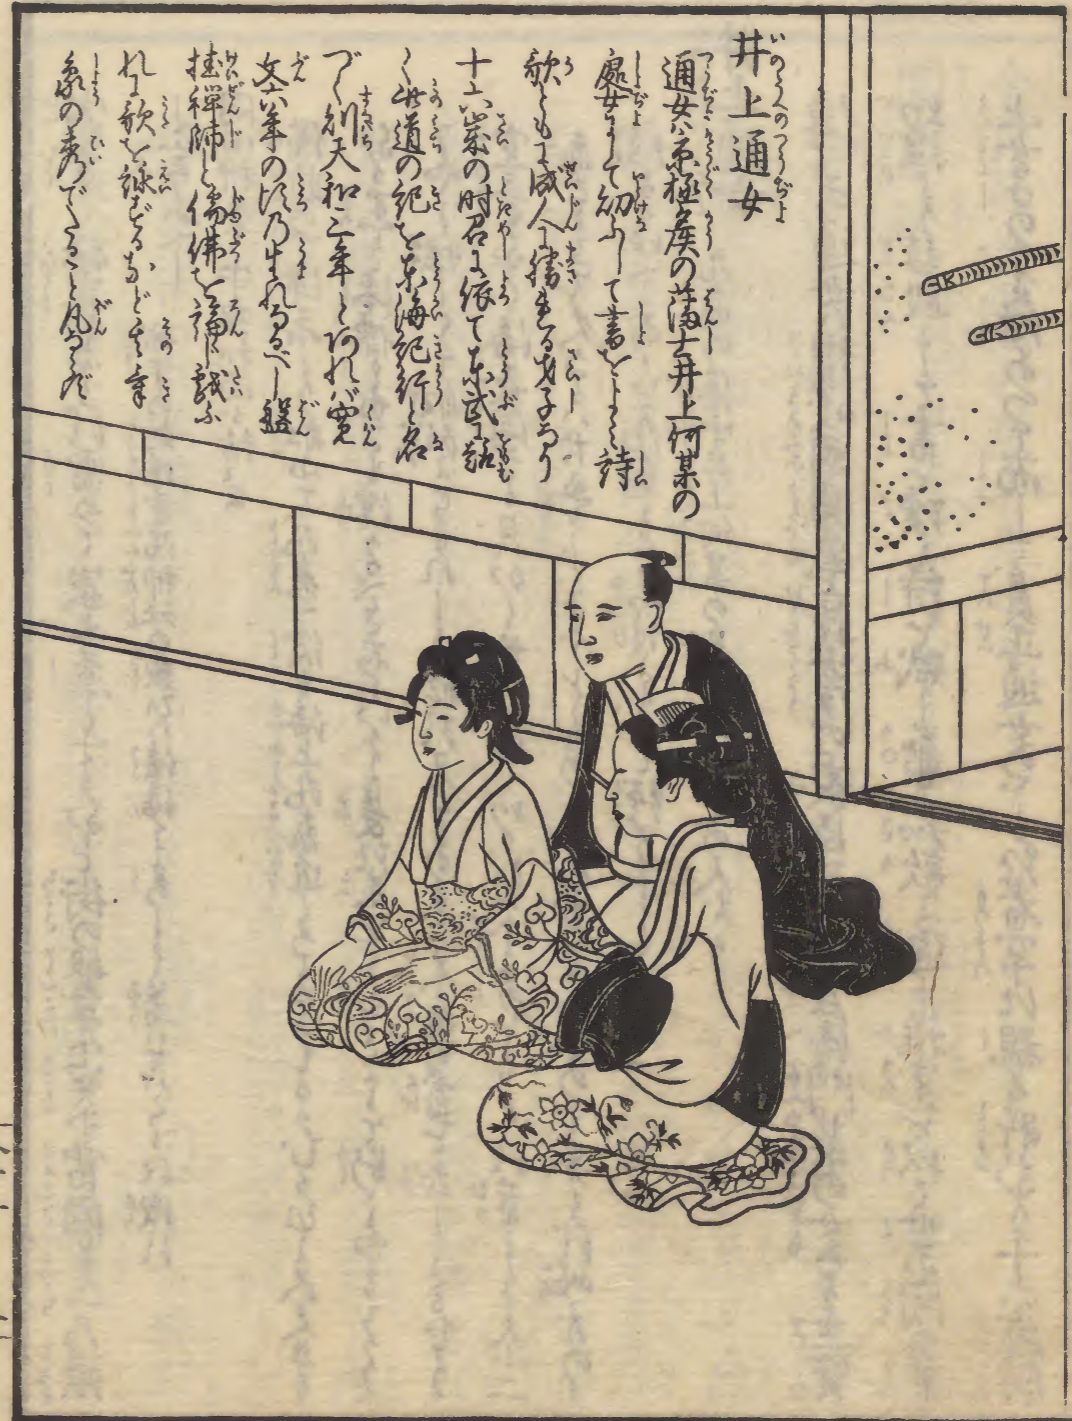 井上通女
通女ハ京極侯の藩士井上何某の
處女にて幼ふして書をよミ詩
歌ともに成人に勝れる才子なり
十六歳の時召に依て東武に趣
く此道の紀を東海紀行と名
づく則天和二年とあれバ寛
文六年の頃乃生れなるべし盤
珪禅師と儒佛を論じ戯ふ
れに歌を詠ぜるなど其気
象の秀でたること凡ならず